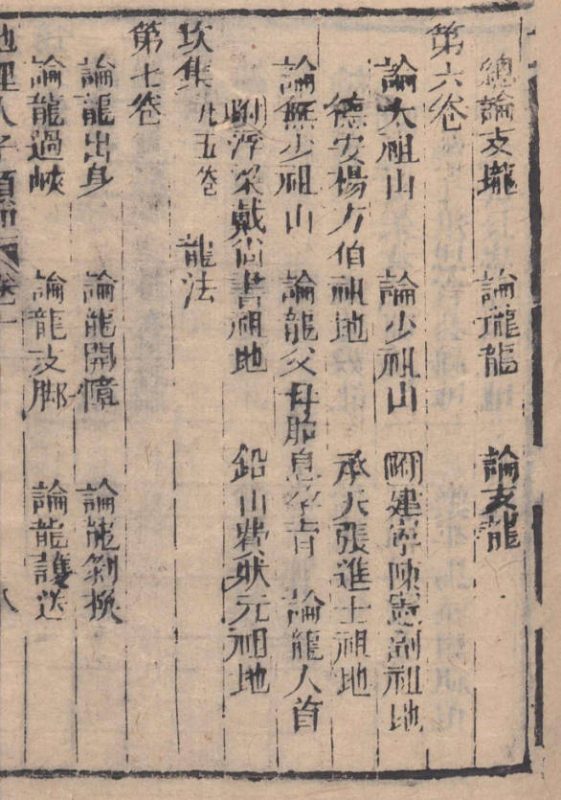 總論支壠　論壠龍　論支龍
第六卷
論太祖山　論少祖山　附建寧陳憲副祖地
德安楊方伯祖地　承天張進士祖地
論無少祖山　論龍父母胎息孕育　論龍入首
附浮梁戴尚書祖地　鉛山費狀元祖地
坎集凡五卷　龍法
第七卷
論龍出身　論龍開幛　論龍剝換
論龍過峽　論龍支脚　論龍護送
地理人子須知 卷一 八